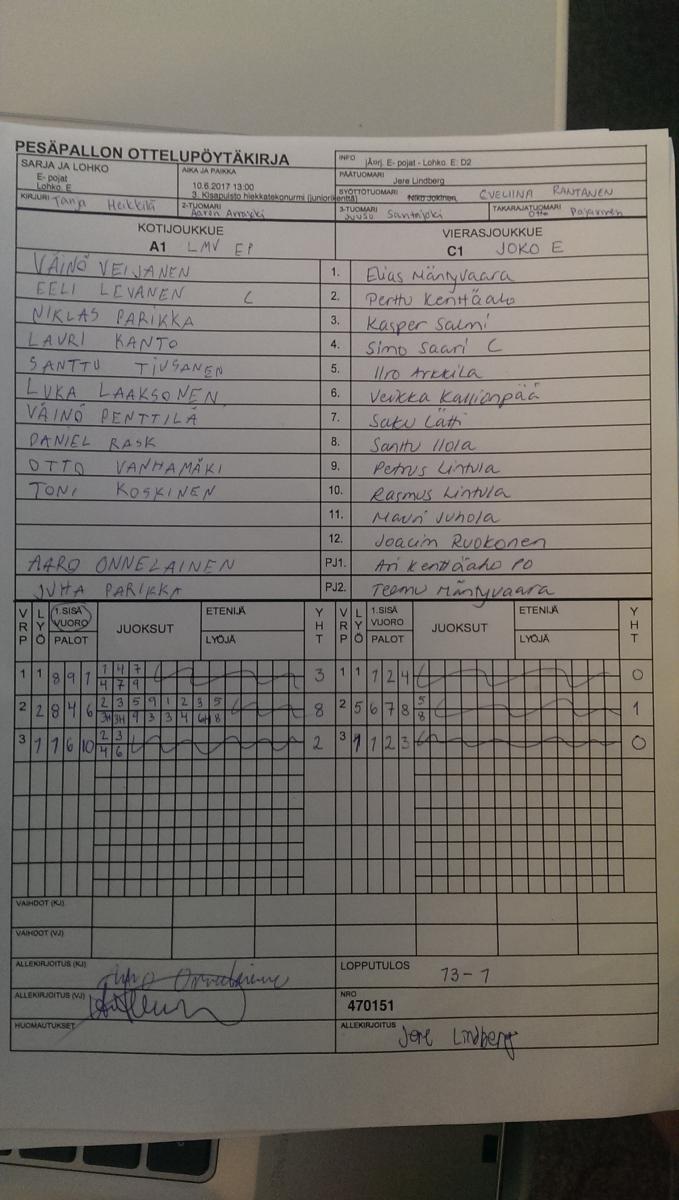 PESÄPALLON OTTELUPÖYTÄKIRJA
SARJA JA LOHKO
E- pojat
Lohko. E
AIKA JA PAIKKA
10.6.2017 13:00
3. Kisapuisto hiekkatekonurmi (juniorikenttä)
INFO jÄorj. E- pojat - Lohko. E: D2
PÄÄTUOMARI
Jere Lindberg
SYÖTTÖTUOMARI Niko Jokinen, EVELIINA RANTANEN
KIRJURI Tanja Heikkilä
2-TUOMARI
Aaron
3-TUOMARI
Juuso Santajoki
TAKARAJATUOMARI
Otto Pajarinen
KOTIJOUKKUE
A1 LMV EP
VIERASJOUKKUE
C1 JOKO E
VÄINÖ VEIJANEN 1. Elias Mäntyvaara
EELI LEVANEN C 2. Perttu Kenttäaho
NIKLAS PARIKKA 3. Kasper Salmi
LAURI KANTO 4. Simo Saari C
SANTTU TIUSANEN 5. Iiro Arkkila
LUKA LAAKSONEN 6. Veikka Kallionpää
VÄINÖ PENTTILÄ 7. Saku Lätti
DANIEL RASK 8. Santtu Ilola
OTTO VANHAMÄKI 9. Petrus Lintula
TONI KOSKINEN 10. Rasmus Lintula
11. Mauri Juhola
12. Joacim Ruokonen
AARO ONNELAINEN PJ1. Ari Kenttäaho PO
JUHA PARIKKA PJ2. Teemu Mäntyvaara
VRP LYÖ 1.SISÄ VUORO PALOT JUOKSUT ETENIJÄ LYÖJÄ YHT VRP LYÖ 1.SISÄ VUORO PALOT JUOKSUT ETENIJÄ LYÖJÄ YHT
1 1 8 9 1 1 4 7 3 1 1 1 2 4 0
4 7 9
2 2 8 4 6 2 3 5 9 1 2 3 5 8 2 5 6 7 8 5 1
3H 3H 9 3 3 4 6H 8 8
3 1 1 6 10 2 3 2 3 1 1 2 3 0
4 6
VAIHDOT (KJ)
VAIHDOT (VJ)
ALLEKIRJOITUS (KJ)
LOPPUTULOS 13-1
ALLEKIRJOITUS (VJ)
NRO
470151
HUOMAUTUKSET
ALLEKIRJOITUS Jere Lindberg